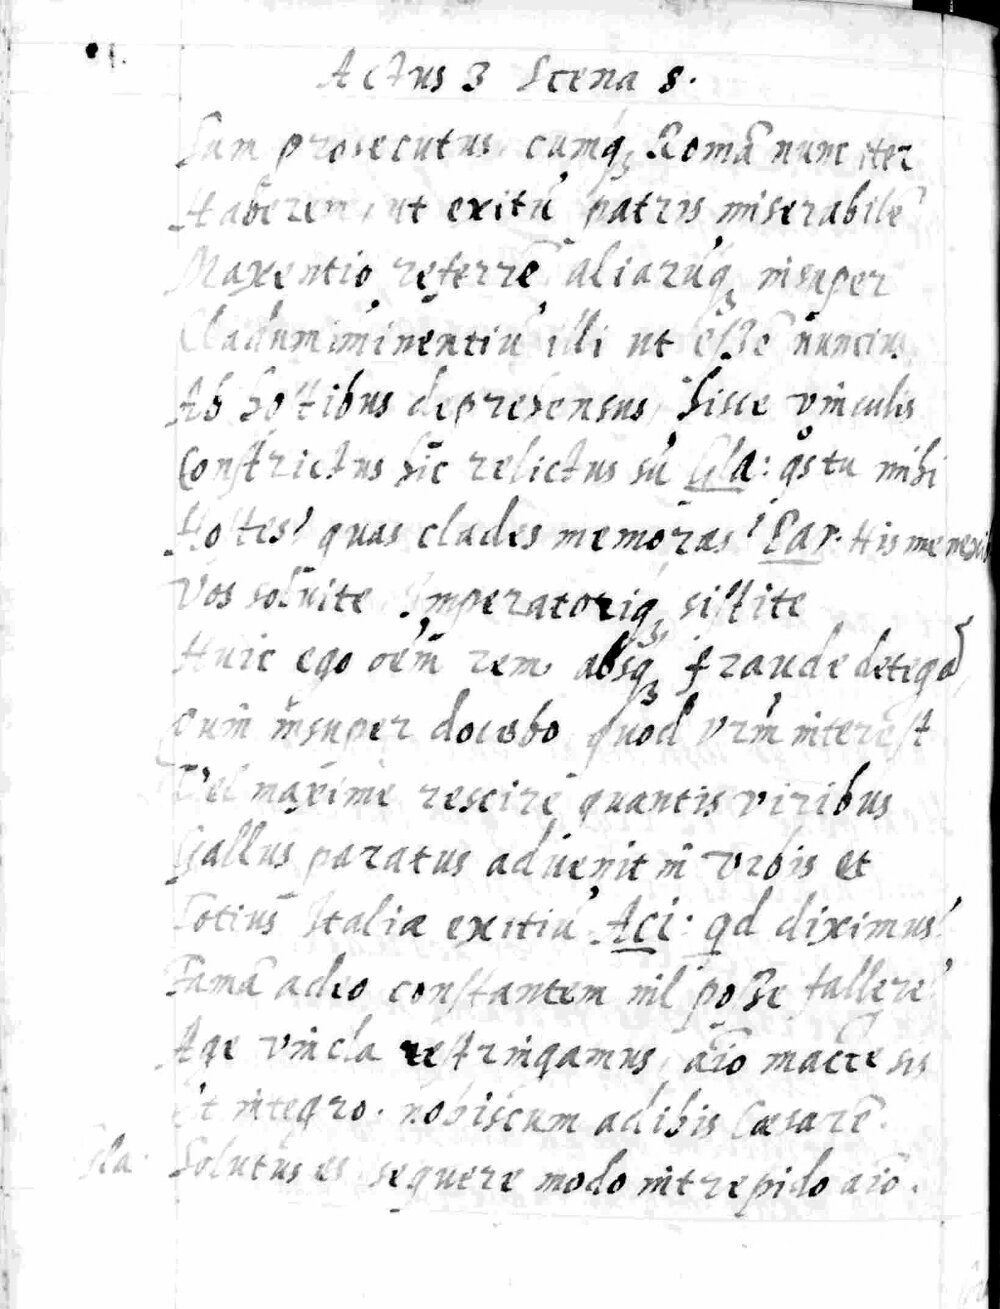 Actus 3 Scena 8.
Sum prosecutus, cumq₃ Romā nunc iter
Haberem, ut exitū patris miserabilē
Maxentio referrē aliarūq₃ insuper
Cladum iminentiū illi ut essē nuncius
Ab hostibus deprehensus, hisce vinculis
Constrictus hic relictus sū Gla: qs tu mihi
Hostes? quas clades memoras? Par. His me nexib
Vos soluite Imperatoriq₃ sistite
Huic ego oēm rem absq₃ fraude detegā,
Cum insuper docebo quod vrm̄ interest
Vel maximē rescire quantis viribus
Gallus paratus aduenit in vrbis et
Totius Italiæ exitiū Aci: qd diximus?
Famā adeo constantem nil posse fallere?
Age vincla restringamus, aīo macte sis
Et integro. nobiscum adibis Cæsarē.
Gla. Solutus es sequere modo intrepido aīo.